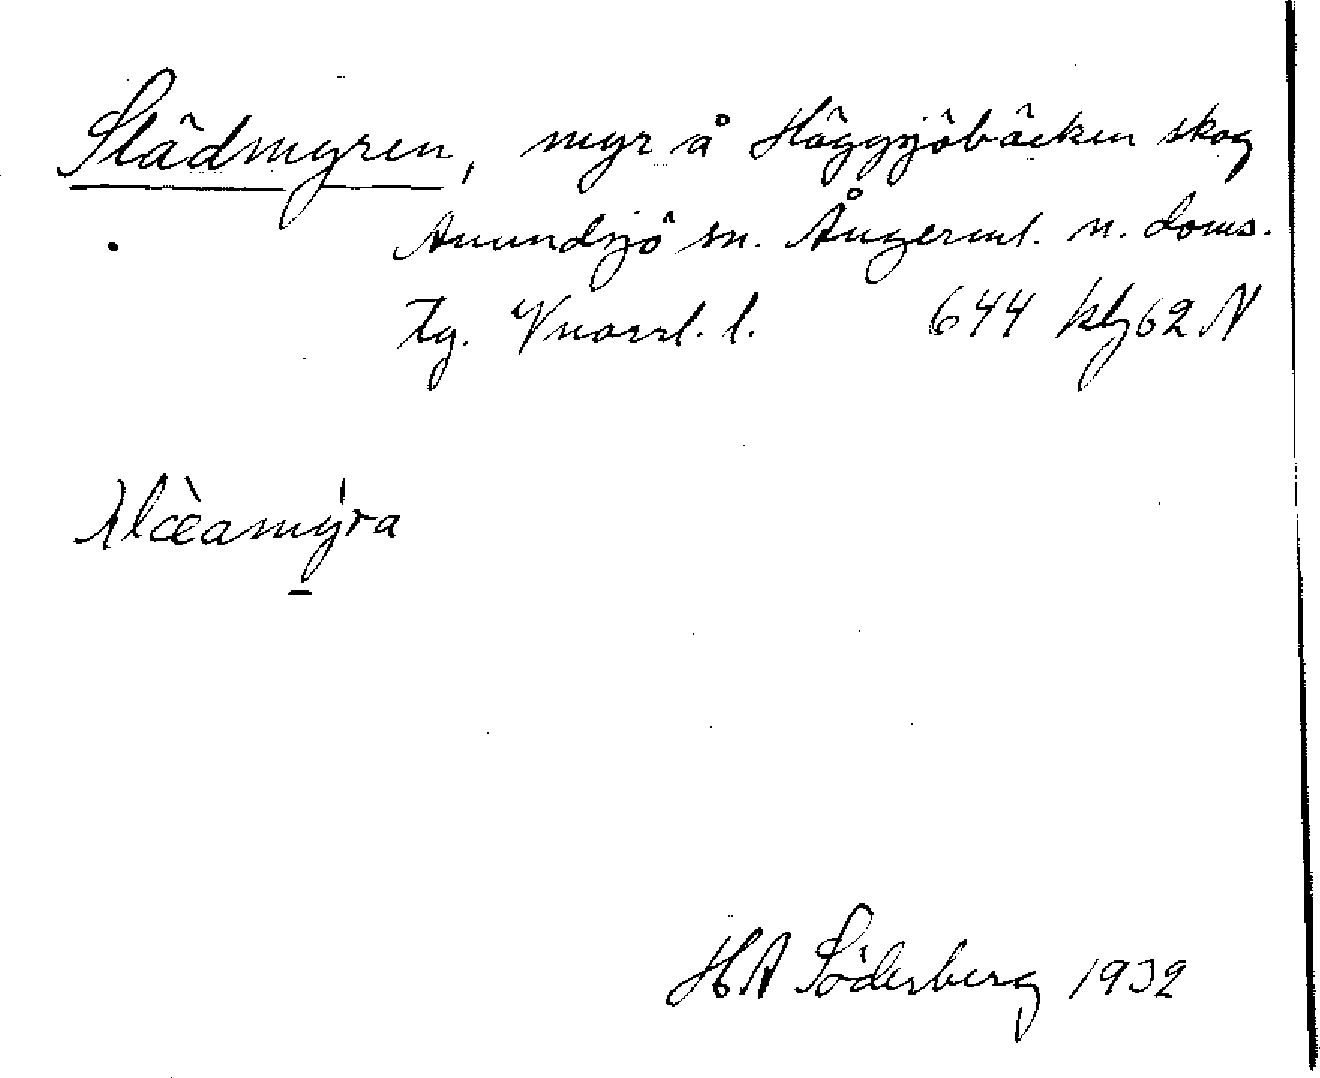 Slädmyren, myr å Höggsjöbäcken skog
Anundsjö sn. Ångerml. n. doms.
tg. l. 644 kbg 62 N
Slæ̀amýra
HA Söderberg 1932